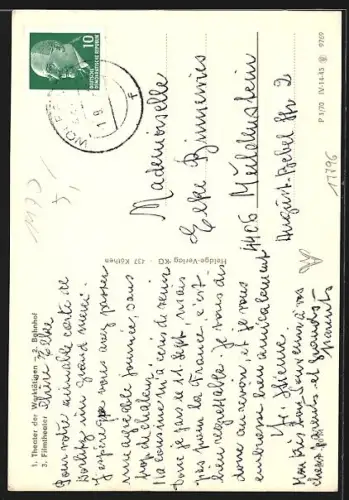 1. Theater der Werktätigen — 2. Bahnhof
3. Filmtheater
Chère Elke
Pour votre aimable carte de
Görlitz un grand merci.
J'espère que vous avez passé
une agréable journée sans
trop de chaleur.
Ma cousine m'a
donc je pars le 11. Sept, mais
pas pour la France, c'est
bien regrettable. Je vous dis
donc au revoir, et je vous
embrasse bien amicalement
Yr.
Mon très bon souvenir à vos
chers parents et grands-
parents
Heldge-Verlag KG · 437 Köthen
10
DEUTSCHE
DEMOKRATISCHE REPUBLIK
WOLFEN
Mademoiselle
Elke
4406 Muldenstein
August-Bebel Str 2
P 1/70 IV-14-45 9269
17796